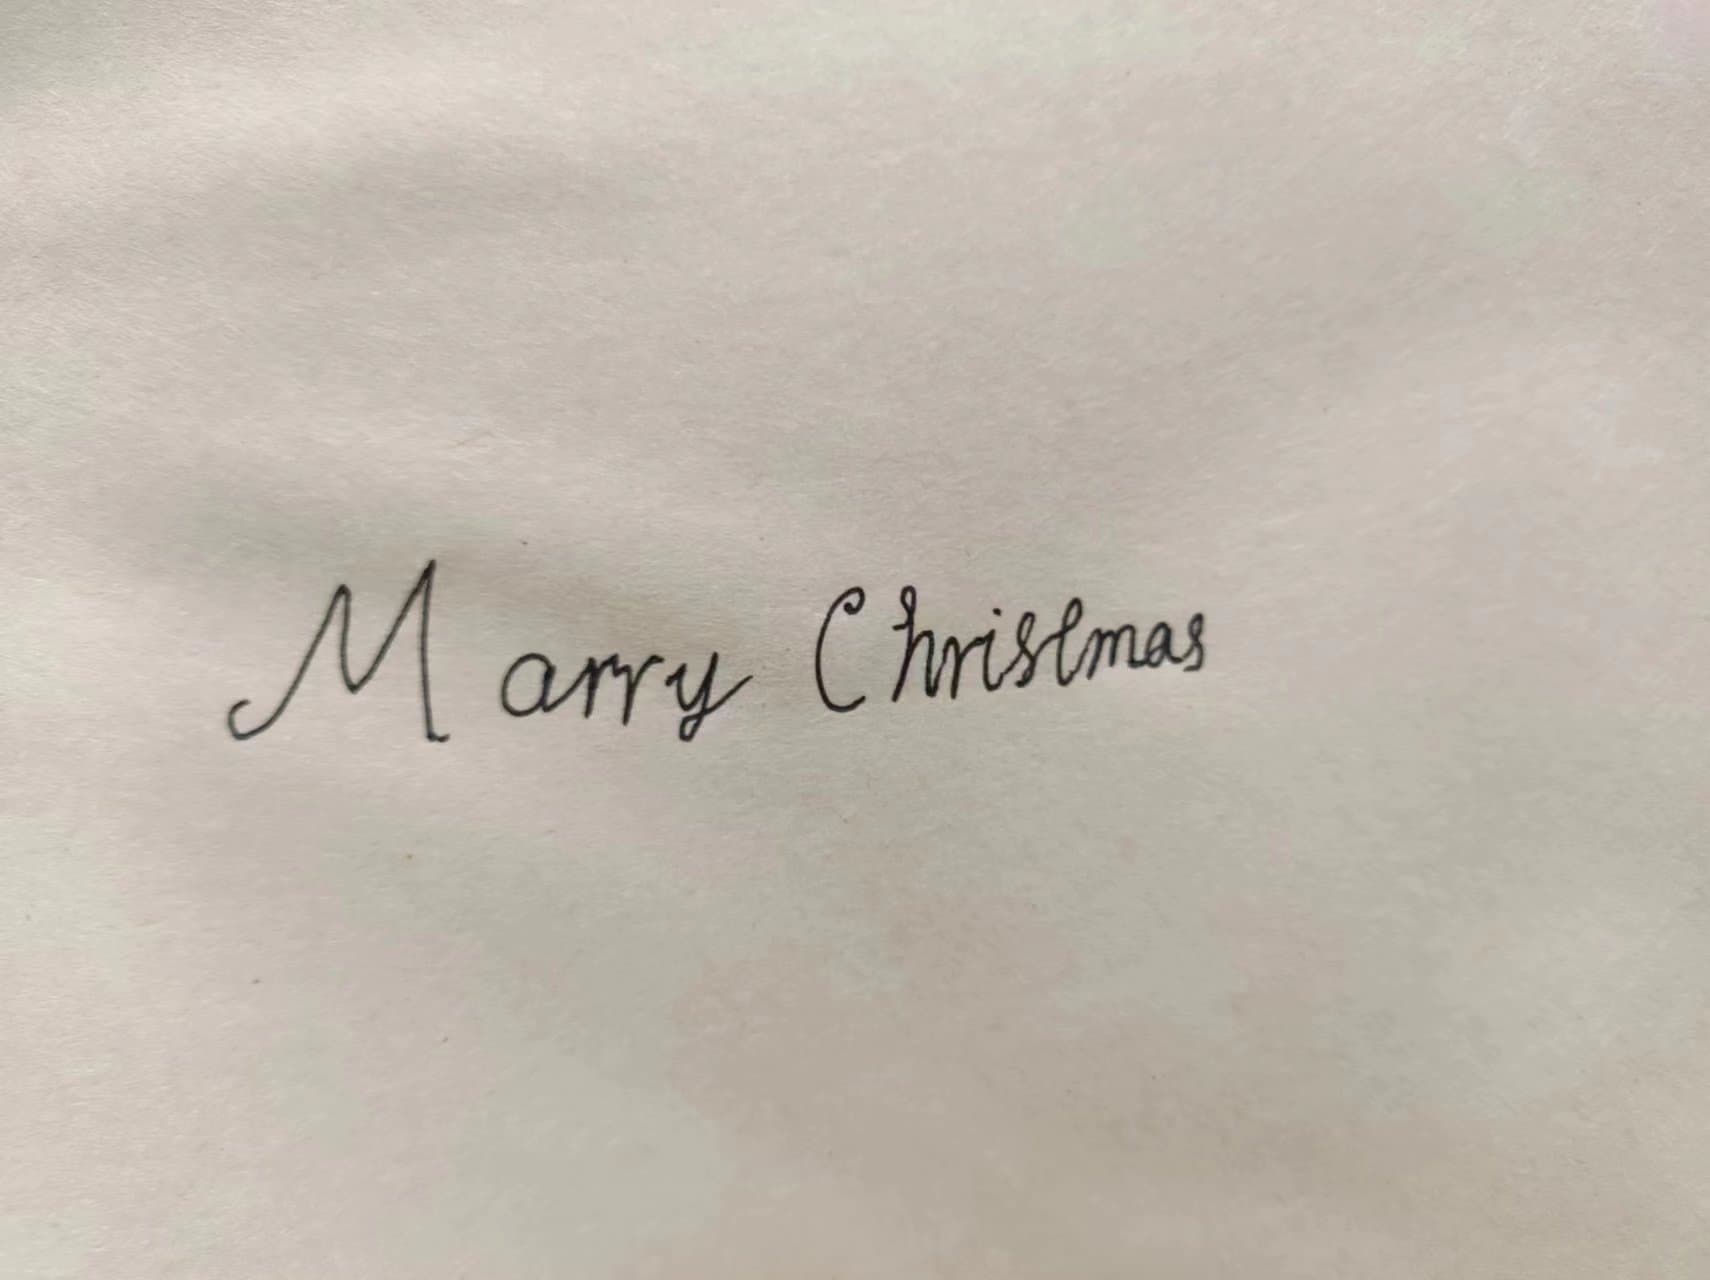 Marry Christmas